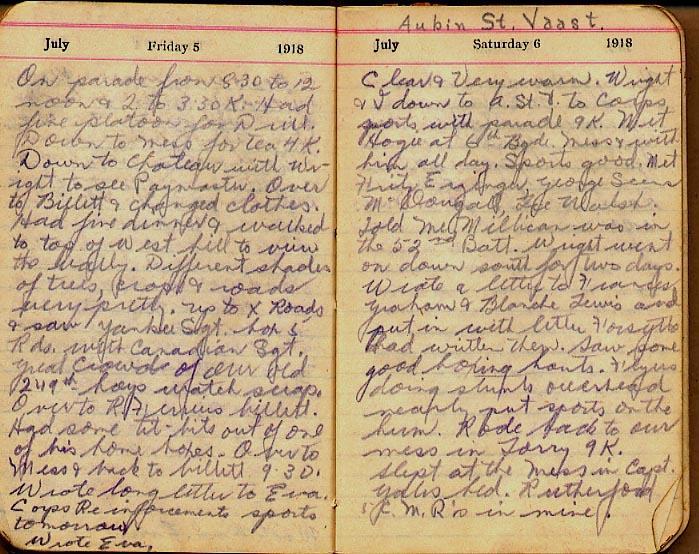 July Friday 5 1918
On parade from 8.30 to 12
noon & 2 to 3.30 K. Had
fine platoon for Drill.
Down to mess for tea 4 K.
Down to Chateau with Wr-
ight to see Paymaster. Over
to Billett & changed clothes.
Had fine dinner & walked
to top of West hill to view
the vally. Different shades
of trees, crops & roads
very pretty. Up to X Roads
& saw Yankee Sgt. box 5
Rds. with Canadian Sgt.
Great Crowds of our old
249th boys watch scrap.
Over to R. billett.
Had some tit-bits out of one
of his home boxes. Over to
Mess & back to billett 9.30.
Wrote long letter to Eva.
Corps Reinforcements sports
tomorrow
Wrote Eva.
Aubin St. Vaast.
July Saturday 6 1918
Clear & Very warm. Wright
& I down to A. St. V. to Corps
sports with parade 9 K. Met
Hogue at 6th Bgde. Mess & with
him all day. Sports good. Met
Fritz George
McDougall, Joe Walsh.
Told me Millican was in
the 52nd Batt. Wright went
on down south for two days.
Wrote a letter to Frances
Graham & Blanche Lewis and
put in with letter Forsythe
had written them. Saw some
good boxing bouts. Flyers
doing stunts overhead
nearly put sports on the
bum. Rode back to our
mess in lorry 9 K.
Slept at the Mess in Capt.
bed. Rutherford
C.M.R's in mine.